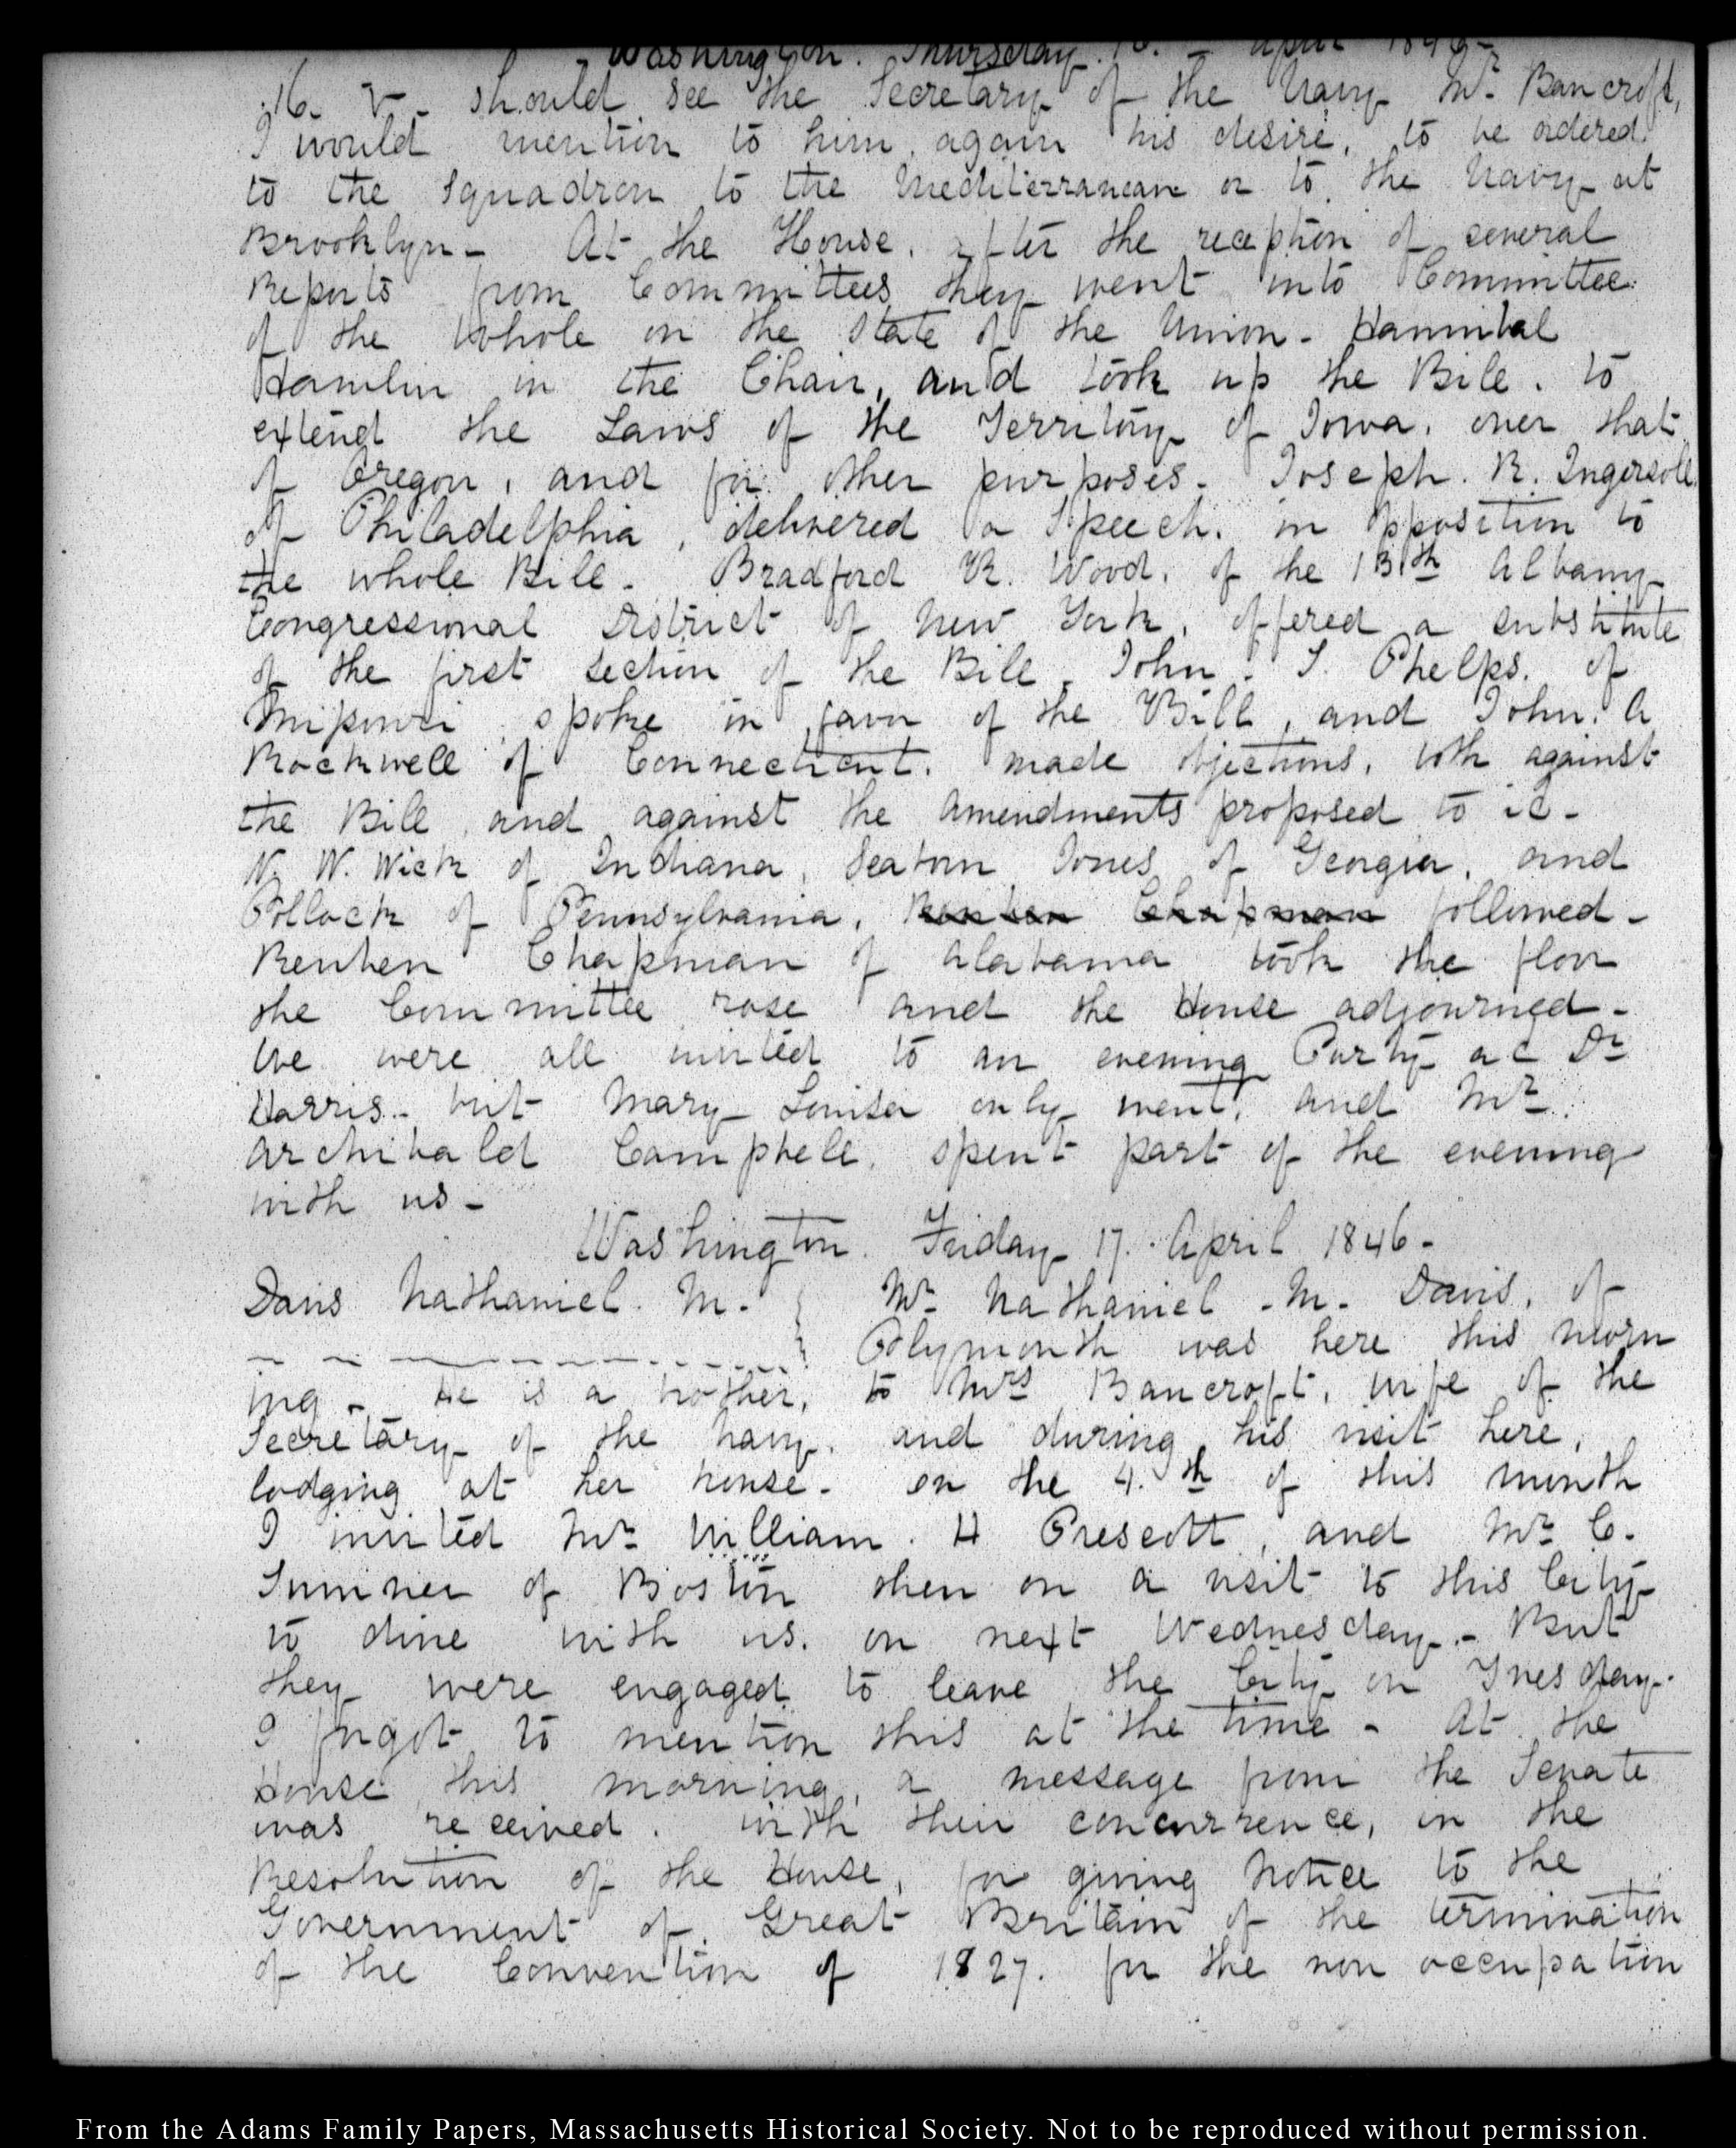 Washington. Thursday. 16. - April 1846-
16. V- should see the Secretary of the Navy Mr. Bancroft,
I would mention to him again his desire, to be ordered
to the Squadron to the Mediterranean or to the Navy at
Brooklyn- At the House, after the reception of several
Reports from Committees they went into Committee
of the Whole on the State of the Union- Hannibal
Hamlin in the Chair, and took up the Bill. to
extend the Laws of the Territory of Iowa. over that
of Oregon, and for other purposes- Joseph. R. Ingersoll
of Philadelphia, delivered a Speech. in opposition to
the whole Bill- Bradford R. Wood. of the 13th Albany
Congressional District of New York, offered a substitute
of the first section of the Bill. John. S. Phelps. of
Missouri spoke in favor of the Bill, and John. A
Rockwell of Connecticut. made objections, both against
the Bill, and against the Amendments proposed to it-
N. W. Wick of Indiana, Seaborn Jones of Georgia, and
Pollock of Pennsylvania, Reuben Chapman followed-
Reuben Chapman of Alabama took the floor
the Committee rose and the House adjourned-
We were all invited to an evening Party at Dr
Harris- but Mary Louisa only went, and Mr.
Archibald Campbell, spent part of the evening
with us-
Washington. Friday 17. April 1846-
Davis Nathaniel. M. } Mr Nathaniel -M- Davis, of
Plymouth was here this morn
ing- He is a brother, to Mrs Bancroft, wife of the
Secretary of the Navy. and during his visit here,
lodging at her house- on the 4.th of this month
I invited Mr William. H Prescott, and Mr C.
Sumner of Boston then on a visit to this City
to dine with us. on next Wednesday- But
they were engaged to leave the City on Tuesday-
I forgot to mention this at the time- At the
House this morning, a message from the Senate
was received. with their concurrence, in the
Resolution of the House, for giving Notice to the
Government of Great Britain of the termination
of the Convention of 1827. for the non occupation
From the Adams Family Papers, Massachusetts Historical Society. Not to be reproduced without permission.